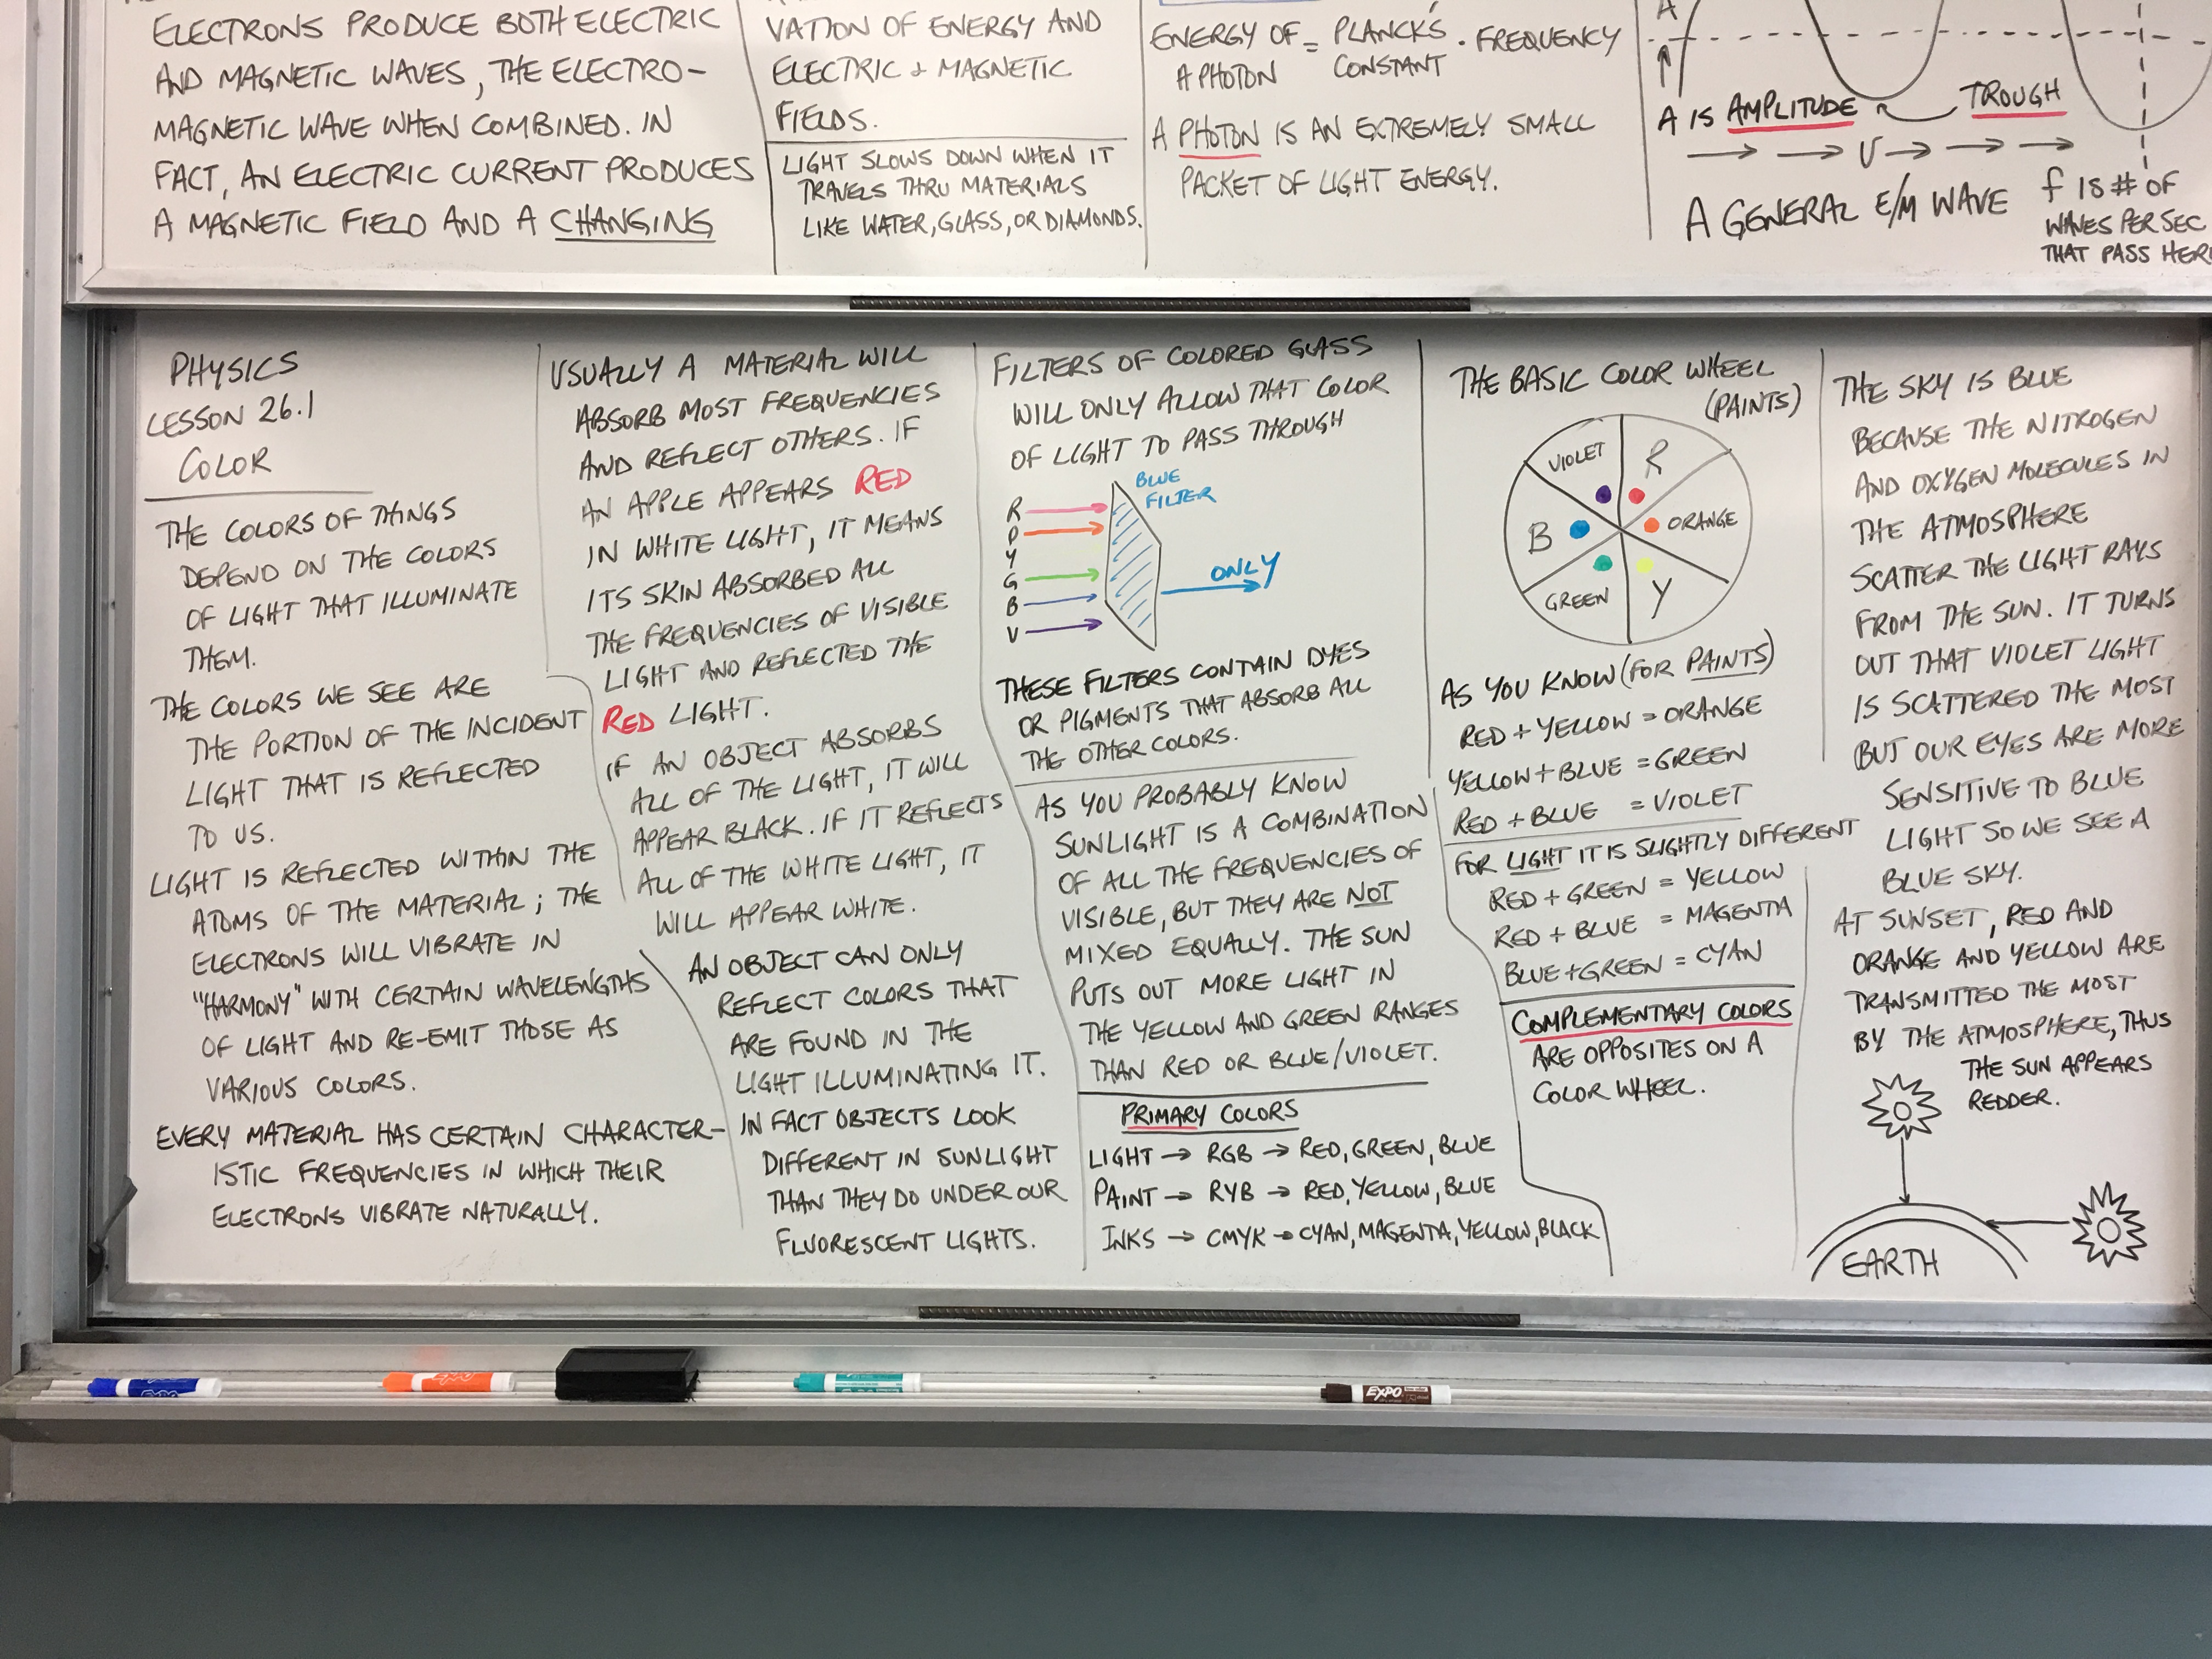 ELECTRONS PRODUCE BOTH ELECTRIC
AND MAGNETIC WAVES, THE ELECTRO-
MAGNETIC WAVE WHEN COMBINED. IN
FACT, AN ELECTRIC CURRENT PRODUCES
A MAGNETIC FIELD AND A CHANGING
VATION OF ENERGY AND
ELECTRIC & MAGNETIC
FIELDS.
LIGHT SLOWS DOWN WHEN IT
TRAVELS THRU MATERIALS
LIKE WATER, GLASS, OR DIAMONDS.
ENERGY OF = PLANCK'S . FREQUENCY
A PHOTON CONSTANT
A PHOTON IS AN EXTREMELY SMALL
PACKET OF LIGHT ENERGY.
A
A IS AMPLITUDE
TROUGH
V
A GENERAL E/M WAVE
f IS # OF
WAVES PER SEC
THAT PASS HER
PHYSICS
LESSON 26.1
COLOR
THE COLORS OF THINGS
DEPEND ON THE COLORS
OF LIGHT THAT ILLUMINATE
THEM.
THE COLORS WE SEE ARE
THE PORTION OF THE INCIDENT
LIGHT THAT IS REFLECTED
TO US.
LIGHT IS REFLECTED WITHIN THE
ATOMS OF THE MATERIAL; THE
ELECTRONS WILL VIBRATE IN
"HARMONY" WITH CERTAIN WAVELENGTHS
OF LIGHT AND RE-EMIT THOSE AS
VARIOUS COLORS.
EVERY MATERIAL HAS CERTAIN CHARACTER-
ISTIC FREQUENCIES IN WHICH THEIR
ELECTRONS VIBRATE NATURALLY.
USUALLY A MATERIAL WILL
ABSORB MOST FREQUENCIES
AND REFLECT OTHERS. IF
AN APPLE APPEARS RED
IN WHITE LIGHT, IT MEANS
ITS SKIN ABSORBED ALL
THE FREQUENCIES OF VISIBLE
LIGHT AND REFLECTED THE
RED LIGHT.
IF AN OBJECT ABSORBS
ALL OF THE LIGHT, IT WILL
APPEAR BLACK. IF IT REFLECTS
ALL OF THE WHITE LIGHT, IT
WILL APPEAR WHITE.
AN OBJECT CAN ONLY
REFLECT COLORS THAT
ARE FOUND IN THE
LIGHT ILLUMINATING IT.
IN FACT OBJECTS LOOK
DIFFERENT IN SUNLIGHT
THAN THEY DO UNDER OUR
FLUORESCENT LIGHTS.
FILTERS OF COLORED GLASS
WILL ONLY ALLOW THAT COLOR
OF LIGHT TO PASS THROUGH
BLUE
FILTER
R
O
Y
G
B
V
ONLY
THESE FILTERS CONTAIN DYES
OR PIGMENTS THAT ABSORB ALL
THE OTHER COLORS.
AS YOU PROBABLY KNOW
SUNLIGHT IS A COMBINATION
OF ALL THE FREQUENCIES OF
VISIBLE, BUT THEY ARE NOT
MIXED EQUALLY. THE SUN
PUTS OUT MORE LIGHT IN
THE YELLOW AND GREEN RANGES
THAN RED OR BLUE/VIOLET.
PRIMARY COLORS
LIGHT → RGB → RED, GREEN, BLUE
PAINT → RYB → RED, YELLOW, BLUE
INKS → CMYK → CYAN, MAGENTA, YELLOW, BLACK
THE BASIC COLOR WHEEL
(PAINTS)
VIOLET
R
B
ORANGE
GREEN
Y
AS YOU KNOW (FOR PAINTS)
RED + YELLOW = ORANGE
YELLOW + BLUE = GREEN
RED + BLUE = VIOLET
FOR LIGHT IT IS SLIGHTLY DIFFERENT
RED + GREEN = YELLOW
RED + BLUE = MAGENTA
BLUE + GREEN = CYAN
COMPLEMENTARY COLORS
ARE OPPOSITES ON A
COLOR WHEEL.
THE SKY IS BLUE
BECAUSE THE NITROGEN
AND OXYGEN MOLECULES IN
THE ATMOSPHERE
SCATTER THE LIGHT RAYS
FROM THE SUN. IT TURNS
OUT THAT VIOLET LIGHT
IS SCATTERED THE MOST
BUT OUR EYES ARE MORE
SENSITIVE TO BLUE
LIGHT SO WE SEE A
BLUE SKY.
AT SUNSET, RED AND
ORANGE AND YELLOW ARE
TRANSMITTED THE MOST
BY THE ATMOSPHERE, THUS
THE SUN APPEARS
REDDER.
EARTH
EXPO